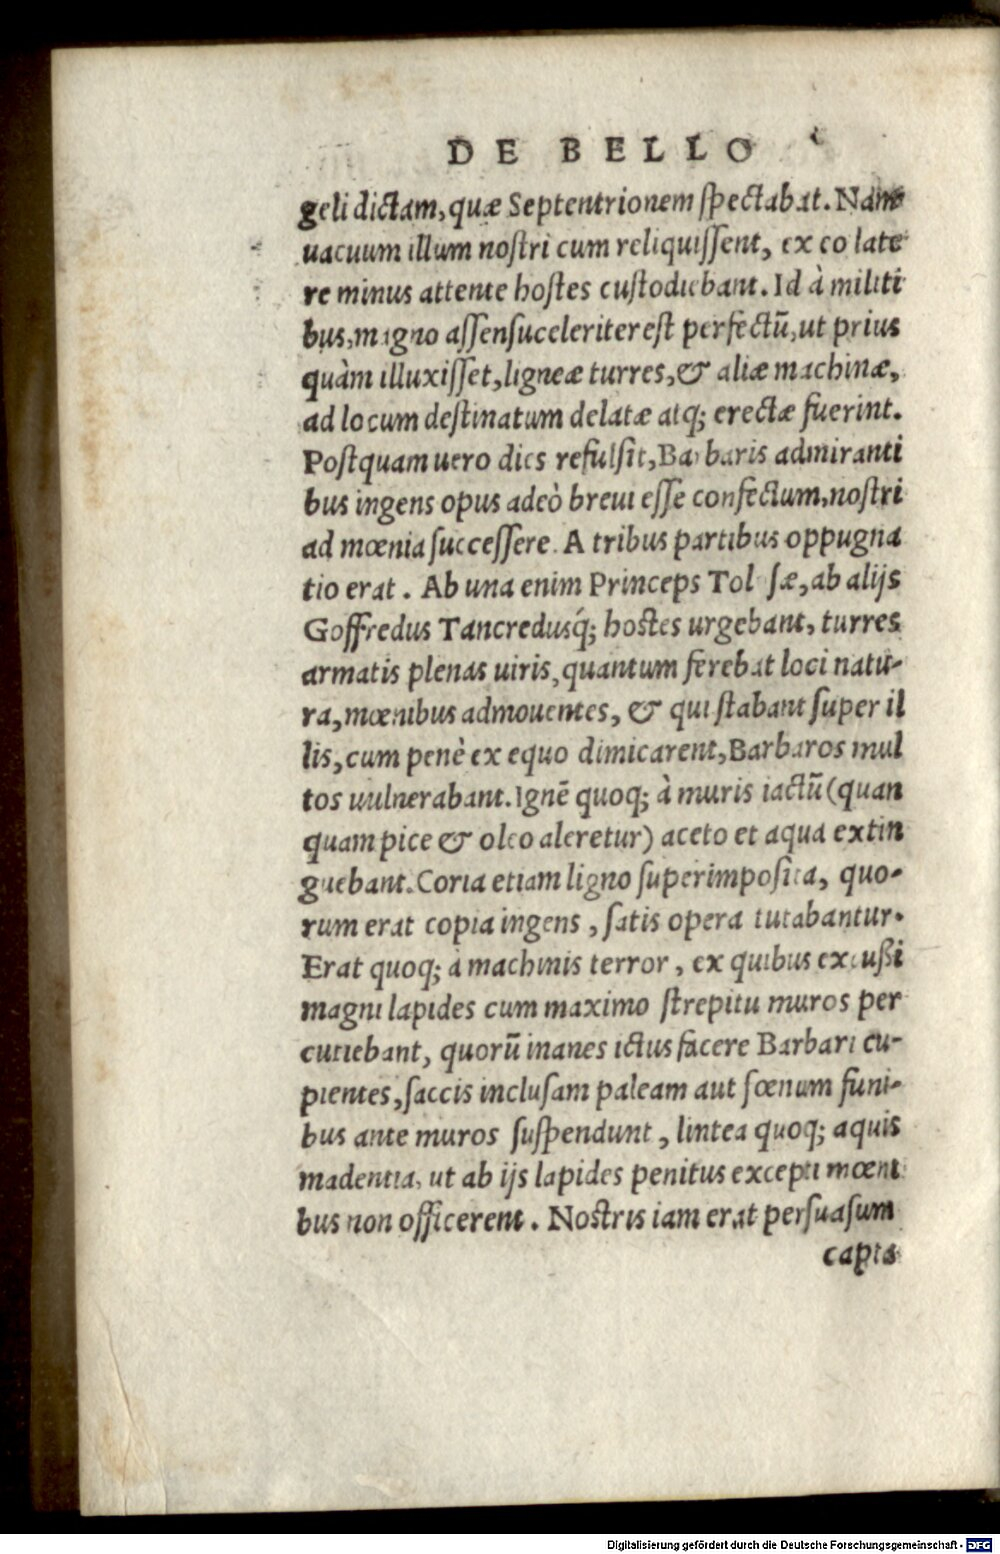 DE BELLO
geli dictam, quæ Septentrionem spectabat. Nam
uacuum illum nostri cum reliquissent, ex eo late
re minus attente hostes custodiebant. Id à militi
bus, magno assensu celeriter est perfectū, ut prius
quàm illuxisset, ligneæ turres, & aliæ machinæ,
ad locum destinatum delatæ atq; erectæ fuerint.
Postquam uero dies refulsit, Barbaris admiranti
bus ingens opus adeò breui esse confectum, nostri
ad mœnia successere. A tribus partibus oppugna
tio erat. Ab una enim Princeps Tol sæ, ab alijs
Goffredus Tancredusq́; hostes urgebant, turres
armatis plenas uiris, quantum ferebat loci natu-
ra, mœnibus admouentes, & qui stabant super il
lis, cum penè ex equo dimicarent, Barbaros mul
tos uulnerabant. Ignē quoq; à muris iactū (quan
quam pice & oleo aleretur) aceto et aqua extin
guebant. Coria etiam ligno superimposita, quo-
rum erat copia ingens, satis opera tutabantur.
Erat quoq; à machinis terror, ex quibus excußi
magni lapides cum maximo strepitu muros per
cutiebant, quorū inanes ictus facere Barbari cu-
pientes, saccis inclusam paleam aut fœnum funi-
bus ante muros suspendunt, lintea quoq; aquis
madentia, ut ab ijs lapides penitus excepti mœni
bus non officerent. Nostris iam erat persuasum
capta
Digitalisierung gefördert durch die Deutsche Forschungsgemeinschaft - DFG